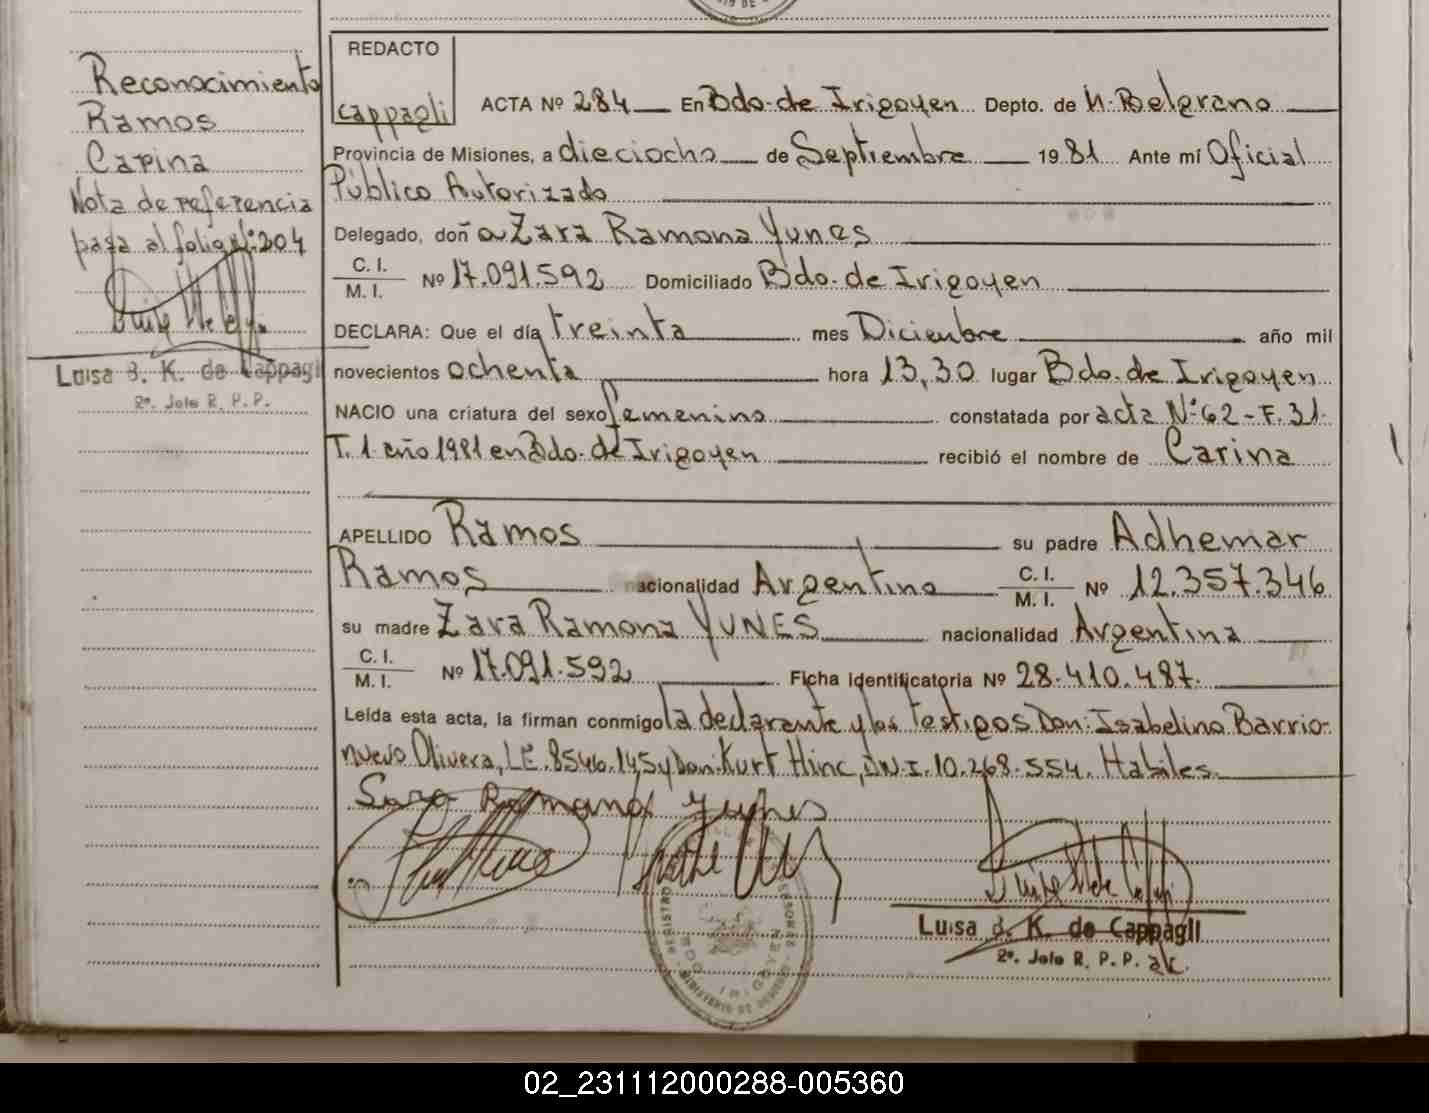 Reconocimiento
Ramos
Carina
Nota de referencia
pasa al folio Nº 204
Luisa B. K. de Cappagli
2º. Jefe R. P. P.
REDACTO
Cappagli
ACTA Nº 284 En Bdo. de Irigoyen Depto. de M. Belgrano
Provincia de Misiones, a dieciocho de Septiembre 1981 Ante mí Oficial
Público Autorizado
Delegado, doña Zara Ramona Yunes
C. I.
M. I. Nº 17.091.592 Domiciliado Bdo. de Irigoyen
DECLARA: Que el día treinta mes Diciembre año mil
novecientos ochenta hora 13,30 lugar Bdo. de Irigoyen
NACIO una criatura del sexo femenino constatada por acta Nº 62 - F. 31.
T. 1 año 1981 en Bdo. de Irigoyen recibió el nombre de Carina
APELLIDO Ramos su padre Adhemar
Ramos nacionalidad Argentino C. I. M. I. Nº 12.357.346
su madre Zara Ramona YUNES nacionalidad Argentina
C. I.
M. I. Nº 17.091.592 Ficha identificatoria Nº 28.410.487.
Leída esta acta, la firman conmigo la declarante y los testigos Don: Isabelino Barrio-
nuevo Olivera, L.E. 8546.145 y Don: Kurt Hinc, D.N.I. 10.268.554. Habiles.
Sara Ramona Yunes
Luisa B. K. de Cappagli
2º. Jefe R. P. P. a/c.
02_231112000288-005360